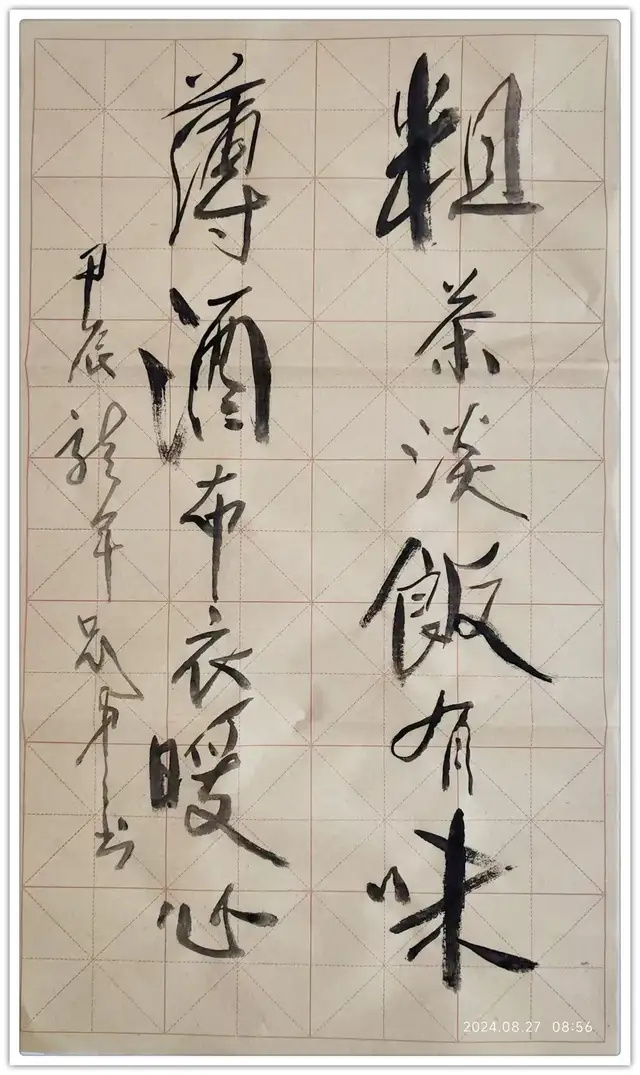 粗茶淡飯有味
薄酒布衣暖心
甲辰龍年
书
2024.08.27 08:56